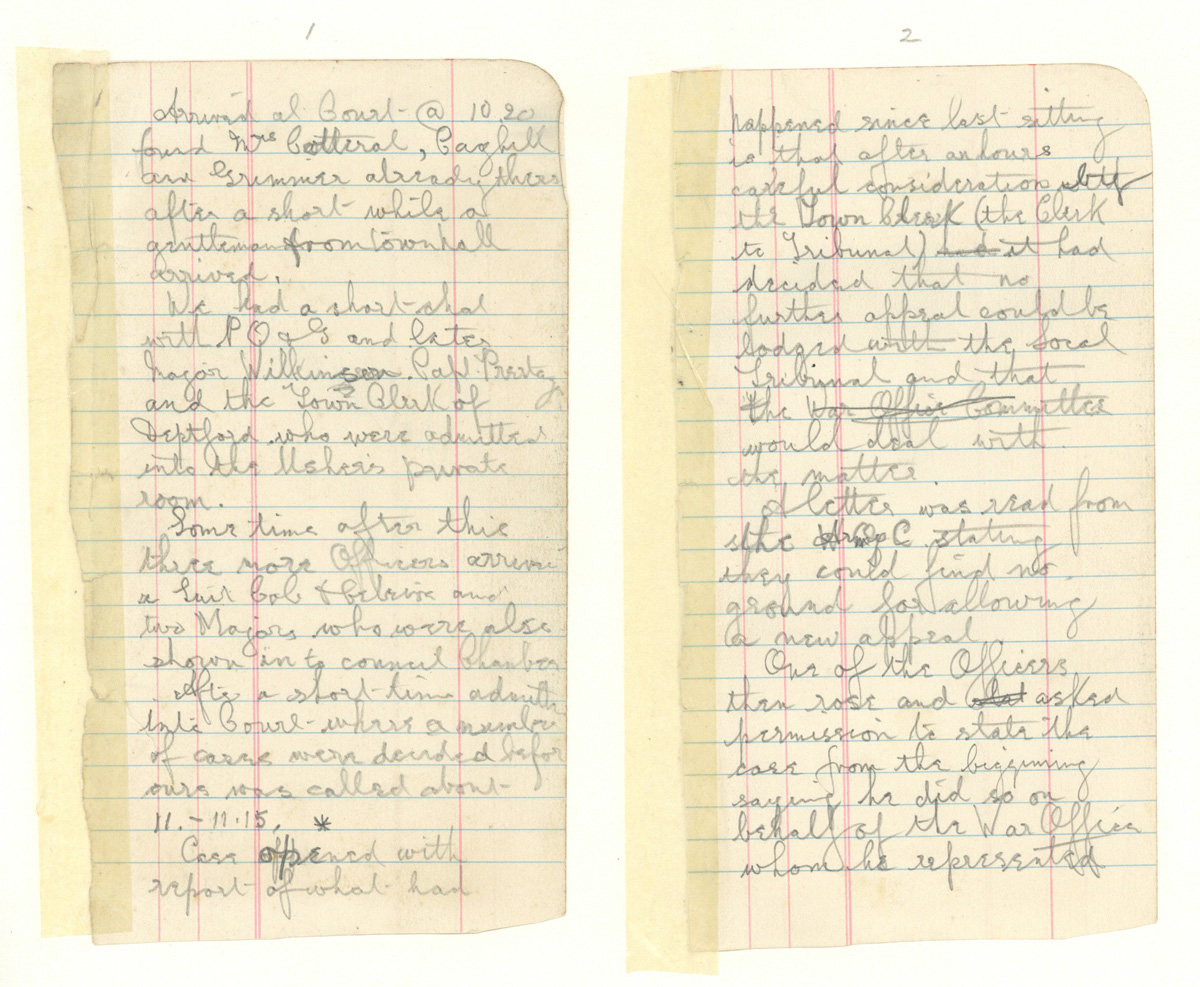 1
Arrived at Court @ 10.20
found Mrs Cotteral, Caghill
and Grimmer already there
after a short while a
gentleman from Townhall
arrived.
We had a short chat
with P O & G and later
Major Wilkinson. Capt.
and the Town Clerk of
Deptford who were admitted
into the Usher's private
room.
Some time after this
three more Officers arrived
a Col & and
two Majors who were also
shown into council Chamber
After a short time admitte
into Court where a number
of cases were decided befor
ours was called about
11. - 11.15. *
Case opened with
report of what had
2
happened since last sitting
is that after an hours
careful consideration
the Town Clerk (the Clerk
to Tribunal) it had
decided that no
further appeal could be
lodged with the Local
Tribunal and that
the War Office Committee
would deal with
the matter.
A letter was read from
the stating
they could find no
ground for allowing
a new appeal
One of the Officers
then rose and asked
permission to state the
case from the biggining
saying he did so on
behalf of the War Office
whom he represented